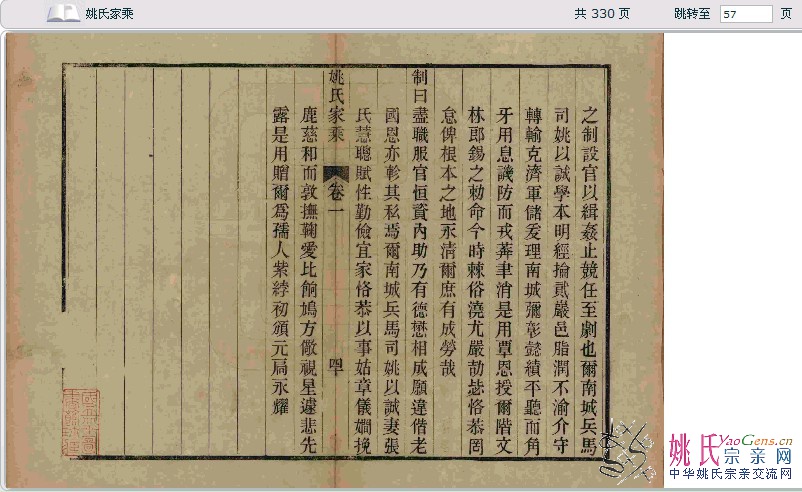 姚氏家乘
共 330 页
跳转至 57 页
之制設官以緝姦止競任至劇也爾南城兵馬
司姚以誠學本明經掄貳嚴邑脂潤不渝介守
轉輸克濟軍儲爰理南城彌彰懿績平聽而角
牙用息譏防而戎莽聿消是用覃恩授爾階文
林郎錫之勅命今時棘俗澆尤嚴劼毖恪恭罔
怠俾根本之地永清爾庶有成勞哉
制曰盡職服官恒資內助乃有德懋相成願違偕老
國恩亦軫其私焉爾南城兵馬司姚以誠妻張
氏慧聰賦性勤儉宜家恪恭以事姑章儀嫺挽
姚氏家乘 卷一 四十
鹿慈和而敦撫鞠愛比餉鳩方儆視星遽悲先
露是用贈爾爲孺人紫綍初頒元扃永耀
姚氏 YaoGens.cn
宗亲网
中华姚氏宗亲交流网